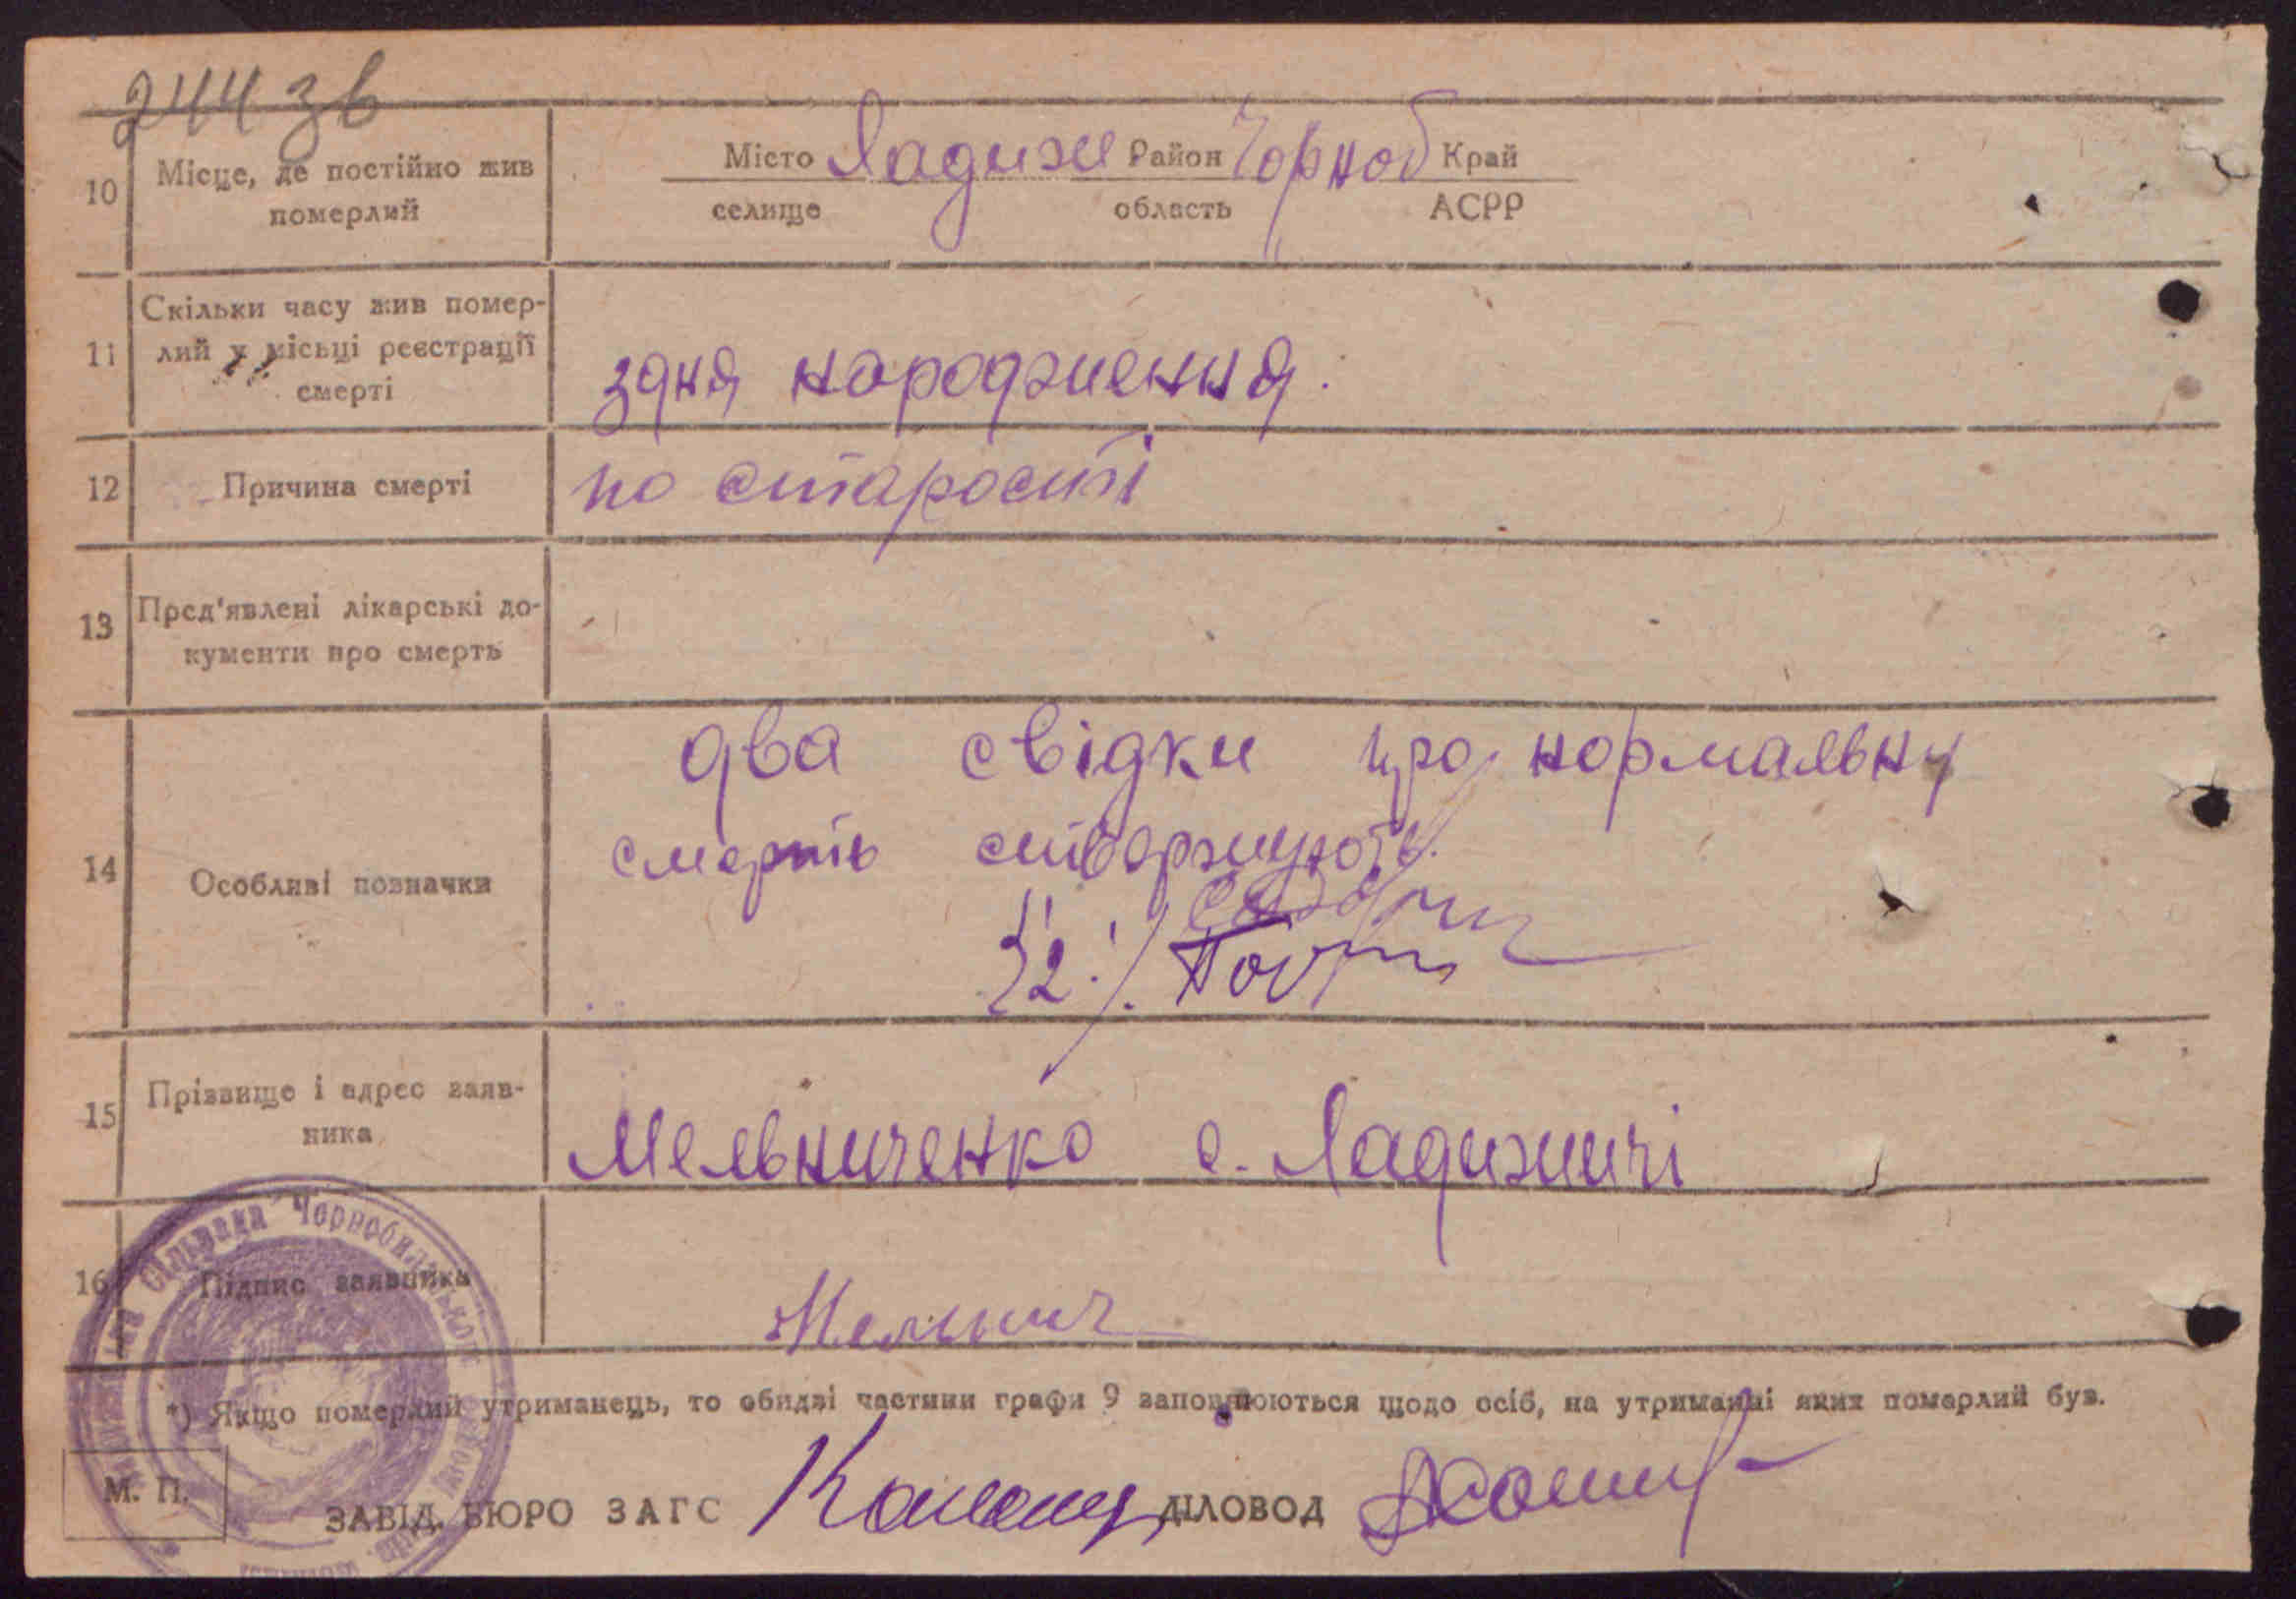 244 зв
10 Місце, де постійно жив померлий
Місто Ладижи Район Чорноб Край
селище область АСРР
11 Скільки часу жив помер-
лий у місьці реєстрації
смерті
здня народження.
12 Причина смерті по старости
13 Пред'явлені лікарські до-
кументи про смерть
два свідки про нормальну
смерть ствержують.
14 Особливі позначки
1/
2/
15 Прізвище і адрес заяв-
ника
Мельниченко с. Ладижичі
16 Підпис заявника
Мельнич
сільрада Чорнобильського
*) Якщо померлий утриманець, то обидві частини графи 9 заповнюються щодо осіб, на утриманні яких померлий був.
М. П.
ЗАВІД. БЮРО ЗАГС ДІЛОВОД